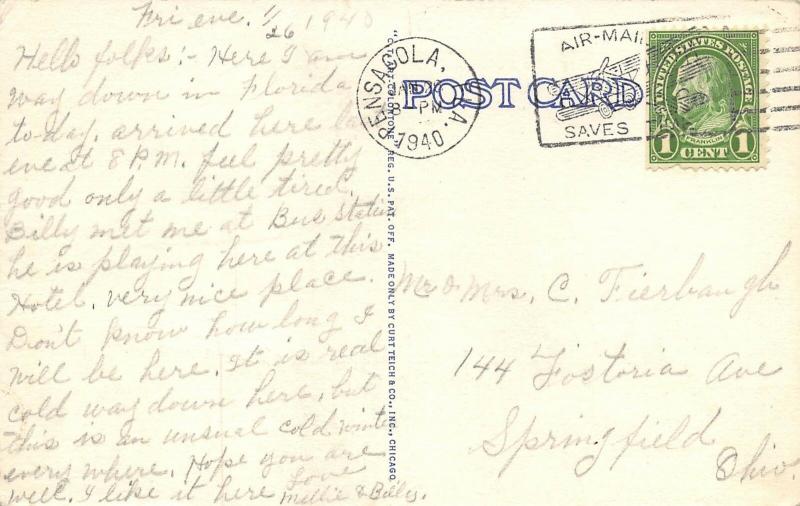 Fri eve. 1/26 1940
Hello folks:- Here I am
way down in Florida
to-day, arrived here
eve at 8 P.M. feel pretty
good only a little tired.
Billy met me at Bus Station
he is playing here at this
Hotel. very nice place.
Don't know how long I
will be here. It is real
cold way down here, but
this is an unusual cold winter
every where. Hope you are
well. I like it here Love
Millie & Billy.
C.T. ART-COLORTONE REG. U.S. PAT. OFF. MADE ONLY BY CURT TEICH & CO., INC., CHICAGO
POST CARD
PENSACOLA, FLA.
JAN
8 PM
1940
AIR-MAIL
SAVES
UNITED STATES POSTAGE
FRANKLIN
1 CENT 1
Mr & Mrs. C. Fierbaugh
144 Fostoria Ave
Springfield
Ohio.